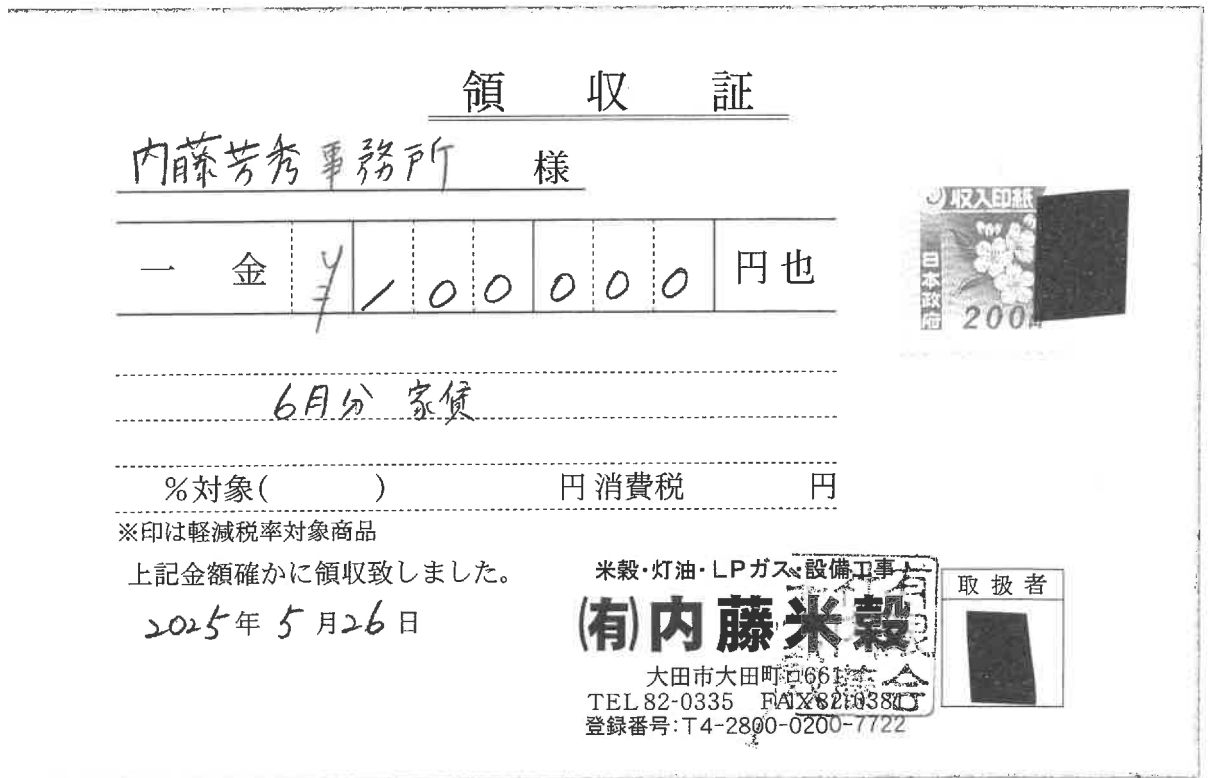 領収証
内藤芳秀事務所 様
収入印紙
日本政府
200円
一金 ¥100000 円也
6月分 家賃
%対象( ) 円 消費税 円
※印は軽減税率対象商品
上記金額確かに領収致しました。
2025年5月26日
米穀・灯油・LPガス・設備工事
(有)内藤米穀
大田市大田町ロ661
TEL 82-0335 FAX 82-0381
登録番号:T4-2800-0200-7722
取扱者